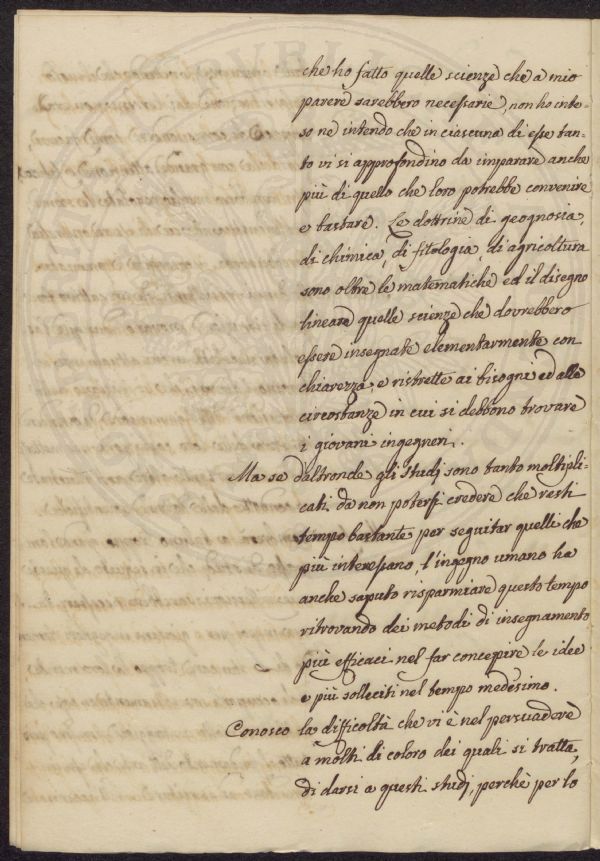 che ho fatto quelle scienze che a mio
parere sarebbero necessarie, non ho inte=
so nè intendo che in ciascuna di esse tan=
to vi si approfondino da imparare anche
più di quello che loro potrebbe convenire
e bastare. Le dottrine di geognosia,
di chimica, di fitologia, di agricoltura
sono oltre le matematiche ed il disegno
lineare quelle scienze che dovrebbero
essere insegnate elementarmente con
chiarezza, e ristrette ai bisogni ed alle
circostanze in cui si debbono trovare
i giovani ingegneri.
Ma se d'altronde gli studj sono tanto moltipli=
cati, da non potersi credere che resti
tempo bastante per seguitar quelli che
più interessano, l'ingegno umano ha
anche saputo risparmiare questo tempo
ritrovando dei metodi di insegnamento
più efficaci nel far concepire le idee
e più solleciti nel tempo medesimo.
Conosco la difficoltà che vi è nel persuadere
a molti di coloro dei quali si tratta,
di darsi a questi studj, perchè per lo